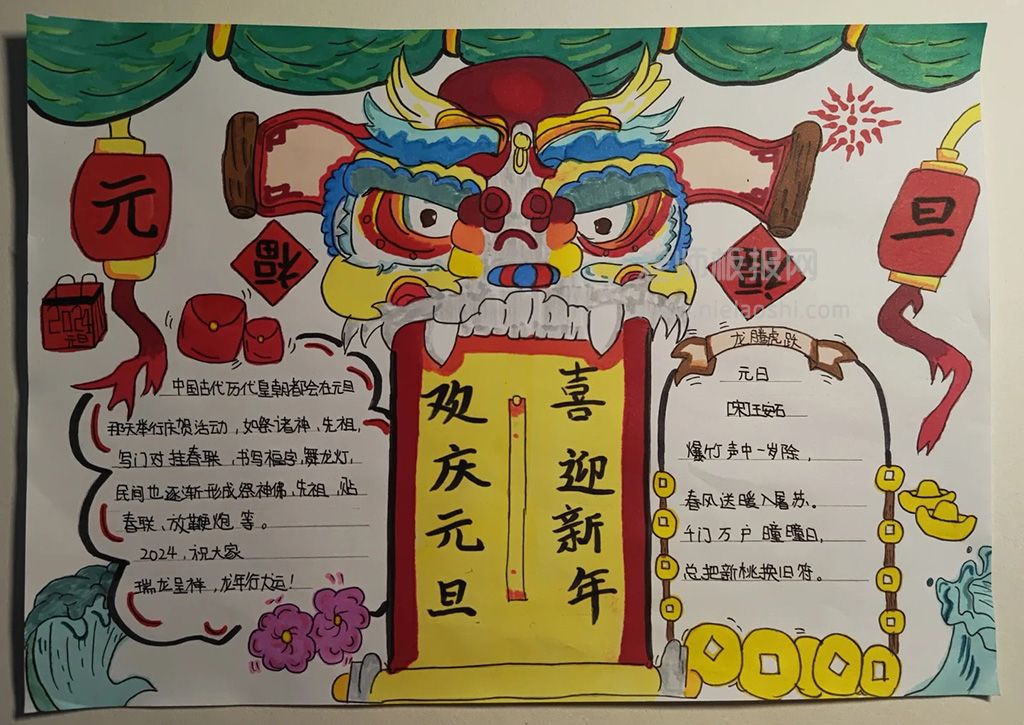 元
旦
福
福
元旦
中国古代历代皇朝都会在元旦
那天举行庆贺活动，如祭诸神、先祖，
写门对挂春联，书写福字，舞龙灯，
民间也逐渐形成祭神佛、先祖，贴
春联、放鞭炮等。
2024，祝大家
瑞龙呈祥，龙年行大运！
喜迎新年
欢庆元旦
龙腾虎跃
元日
[宋]王安石
爆竹声中一岁除，
春风送暖入屠苏。
千门万户曈曈日，
总把新桃换旧符。